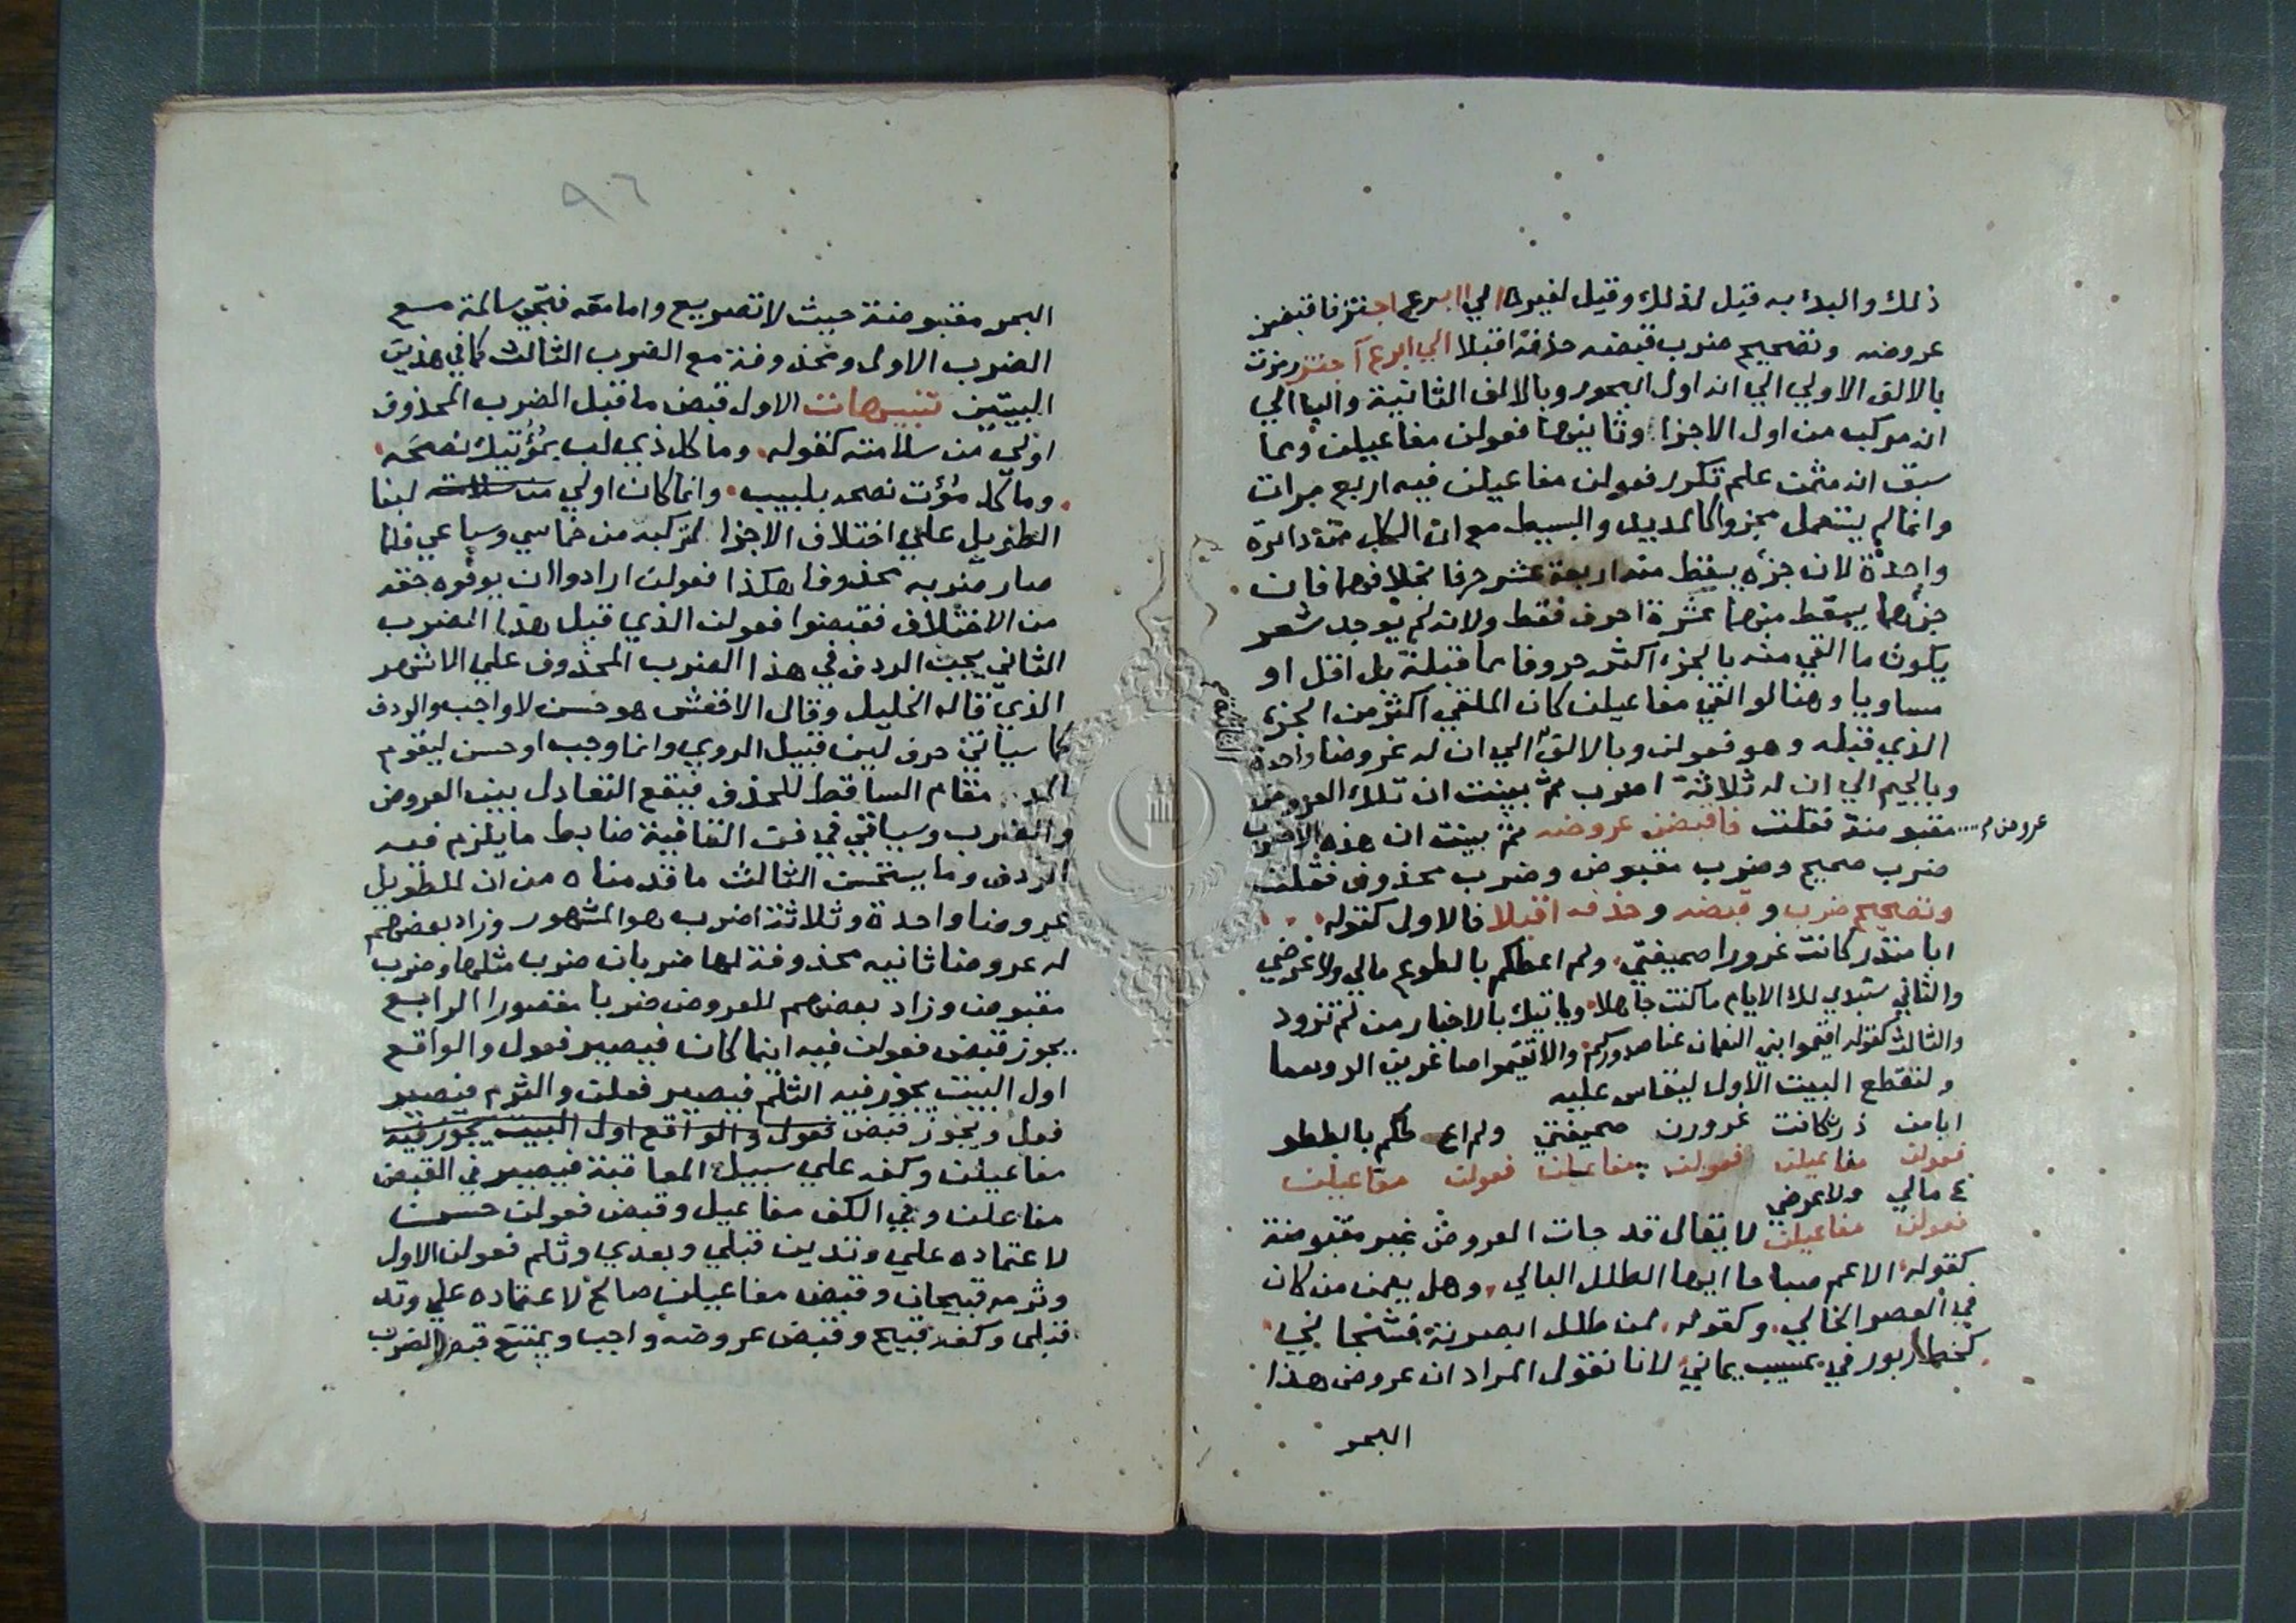 ذلك والبدء به قيل لذلك وقيل لغيره الي ابرع اجتز فاقبضن
عروضه وتصحيح ضرب قبضه حذفه اقبلا الي ابرع آ جتز رمزت
بالالف الاولي الي انه اول البحور وبالالف الثانية واليا الي
انه مركب من اول الاجزا وثانيها فعولن مفاعيلن ومما
سبق انه مثمن علم تكرر فعولن مفاعيلن فيه اربع مرات
وانما لم يستعمل مجزوا كالمديد والبسيط مع ان الكل من دائرة
واحدة لان جزءه يسقط منه اربعة عشر حرفا بخلافهما فان
جزءهما يسقط منهما عشرة احرف فقط ولانه لم يوجد شعر
يكون ما القي منه بالجزء اكثر حروفا مما قبله بل اقل او
مساويا وهنا لو القي مفاعيلن كان الملقي اكثر من الجزء
الذي قبله وهو فعولن وبالالف الي ان له عروضا واحدة
وبالجيم الي ان له ثلاثة اضرب ثم بينت ان تلك العروض
مقبوضة فقلت فاقبضن عروضه ثم بينت ان هذه الاضرب
عروض م
ضرب صحيح وضرب مقبوض وضرب محذوف فقلت
وتصحيح ضرب وقبضه وحذفه اقبلا فالاول كقوله
ابا منذر كانت غرورا صحيفتي ولم اعطكم بالطوع مالي ولا عرضي
والثاني ستبدي لك الايام ما كنت جاهلا وياتيك بالاخبار من لم تزود
والثالث كقوله اقيموا بني النعمان عنا صدوركم والا تقيموا صاغرين الروسا
ولنقطع البيت الاول ليقاس عليه
ابامن ذرن كانت غرورن صحيفتي ولم اع طكم بالطلو
فعولن مفاعيلن فعولن مفاعلن فعولن مفاعيلن
ع مالي ولا عرضي
فعولن مفاعيلن لا يقال قد جات العروض غير مقبوضة
كقوله الاعم صباحا ايها الطلل البالي وهل يعمن من كان
في العصر الخالي وكقوله لمن طلل ابصرته فشجاني
كخط زبور في عسيب يماني لانا نقول المراد ان عروض هذا
البحر
٩٦
البحر مقبوضة حيث لا تصريع واما معه فتجي سالمة مع
الضرب الاول ومحذوفة مع الضرب الثالث كما في هذين
البيتين تنبيهات الاول قبض ما قبل الضرب المحذوف
اولي من سلامته كقوله وما كل ذي لب بمؤتيك نصحه
وما كل مؤت نصحه بلبيب وانما كان اولي من سلامته لبنا
الطويل علي اختلاف الاجزا لتركبه من خماسي وسباعي فلما
صار ضربه محذوفا هكذا فعولن ارادوا ان يوفوه حقه
من الاختلاف فقبضوا فعولن الذي قبل هذا الضرب
الثاني يجب الردف في هذا الضرب المحذوف علي الاشهر
الذي قاله الخليل وقال الاخفش هو حسن لا واجب والردف
كما سياتي حرف لين قبيل الروي وانما وجب او حسن ليقوم
مقام الساقط للحذف فيقع التعادل بين العروض
والضرب وسياتي في فن القافية ضابط ما يلزم فيه
الردف وما يستحسن الثالث ما قدمناه من ان للطويل
عروضا واحدة وثلاثة اضرب هو المشهور وزاد بعضهم
له عروضا ثانيه محذوفة لها ضربان ضرب مثلها وضرب
مقبوض وزاد بعضهم للعروض ضربا مقصورا الرابع
يجوز قبض فعولن فيه اينما كان فيصير فعول والواقع
اول البيت يجوز فيه الثلم فيصير فعلن والثرم فيصير
فعل ويجوز قبض فعول والواقع اول البيت يجوز فيه
مفاعيلن وكفه علي سبيل المعاقبة فيصير في القبض
مفاعلن وفي الكف مفاعيل وقبض فعولن حسن
لاعتماده علي وتدين قبلي وبعدي وثلم فعولن الاول
وثرمه قبيحان وقبض مفاعيلن صالح لاعتماده علي وتد
قبلي وكفه قبيح وقبض عروضه واجب ويمتنع قبض الضرب